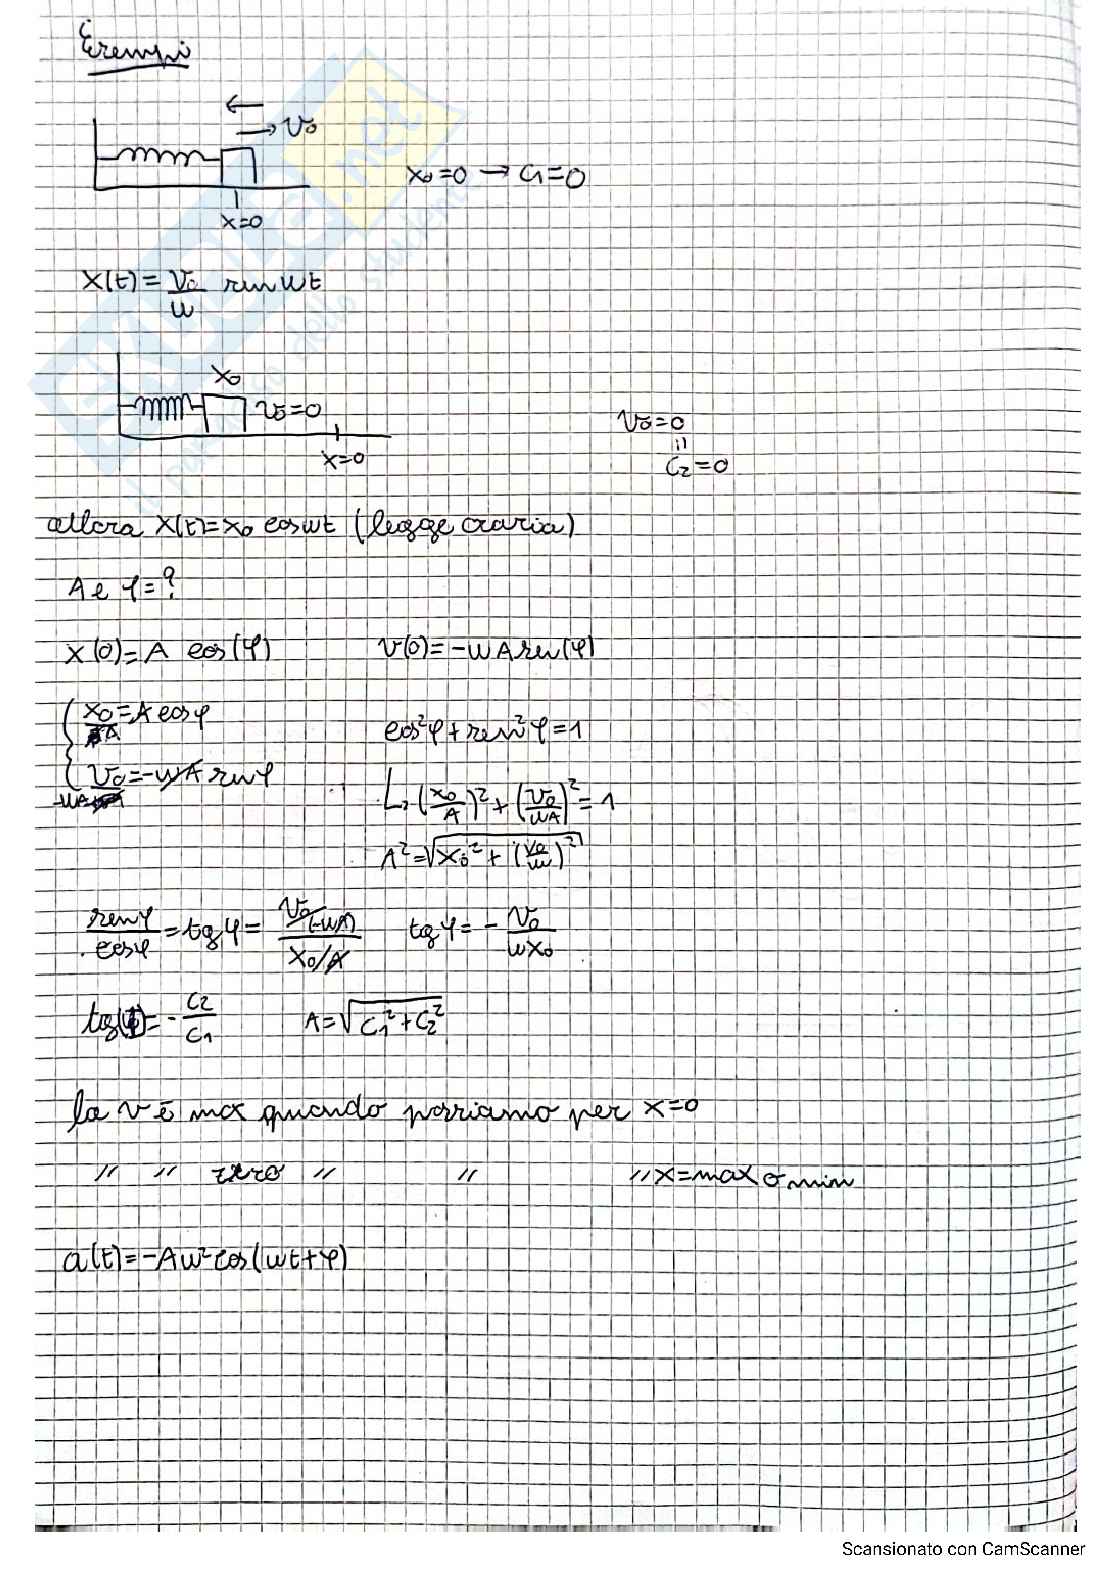 Esempi
v₀
x₀=0 → C₁=0
x=0
x(t)= v₀/ω sen ωt
x₀
v₀=0
v₀=0
=
C₂=0
x=0
allora x(t)=x₀ cos ωt (legge oraria)
A e φ=?
x(0)=A cos(φ) v(0)=-ωA sen(φ)
x₀/A = A cos φ cos²φ+sen²φ=1
v₀/-ωA = -ωA sen φ
↳ (x₀/A)² + (v₀/ωA)² = 1
A²=√(x₀² + (v₀/ω)²)
sen φ/cos φ = tg φ = (v₀/(-ωA))/(x₀/A) tg φ = - v₀/ωx₀
tg(φ)= - C₂/C₁ A=√(C₁²+C₂²)
la v è max quando passiamo per x=0
" " zero " " " x=max o min
a(t)=-Aω²cos(ωt+φ)
Scansionato con CamScanner